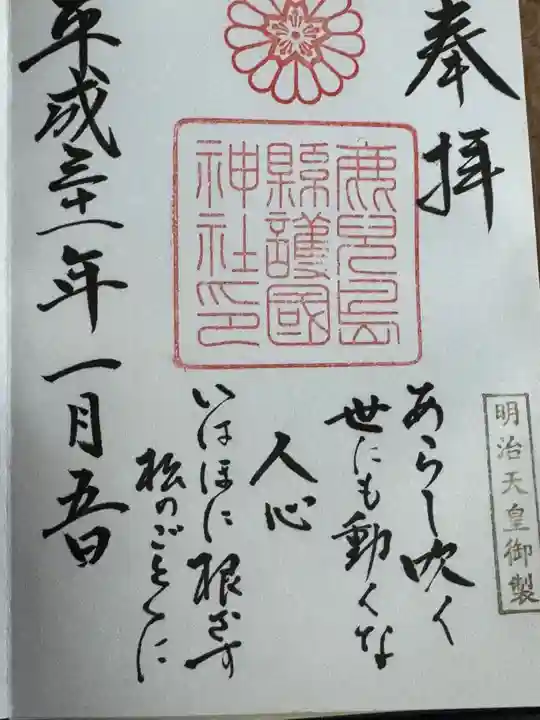 奉拝
明治天皇御製
鹿児島
縣護國
神社印
あらし吹く
世にも動くな
人心
いはほに根ざす
松のごとくに
平成三十一年一月五日